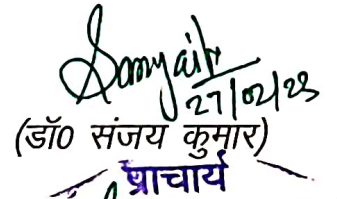 Sanjay Kr
27/02/23
(डॉ0 संजय कुमार)
प्राचार्य